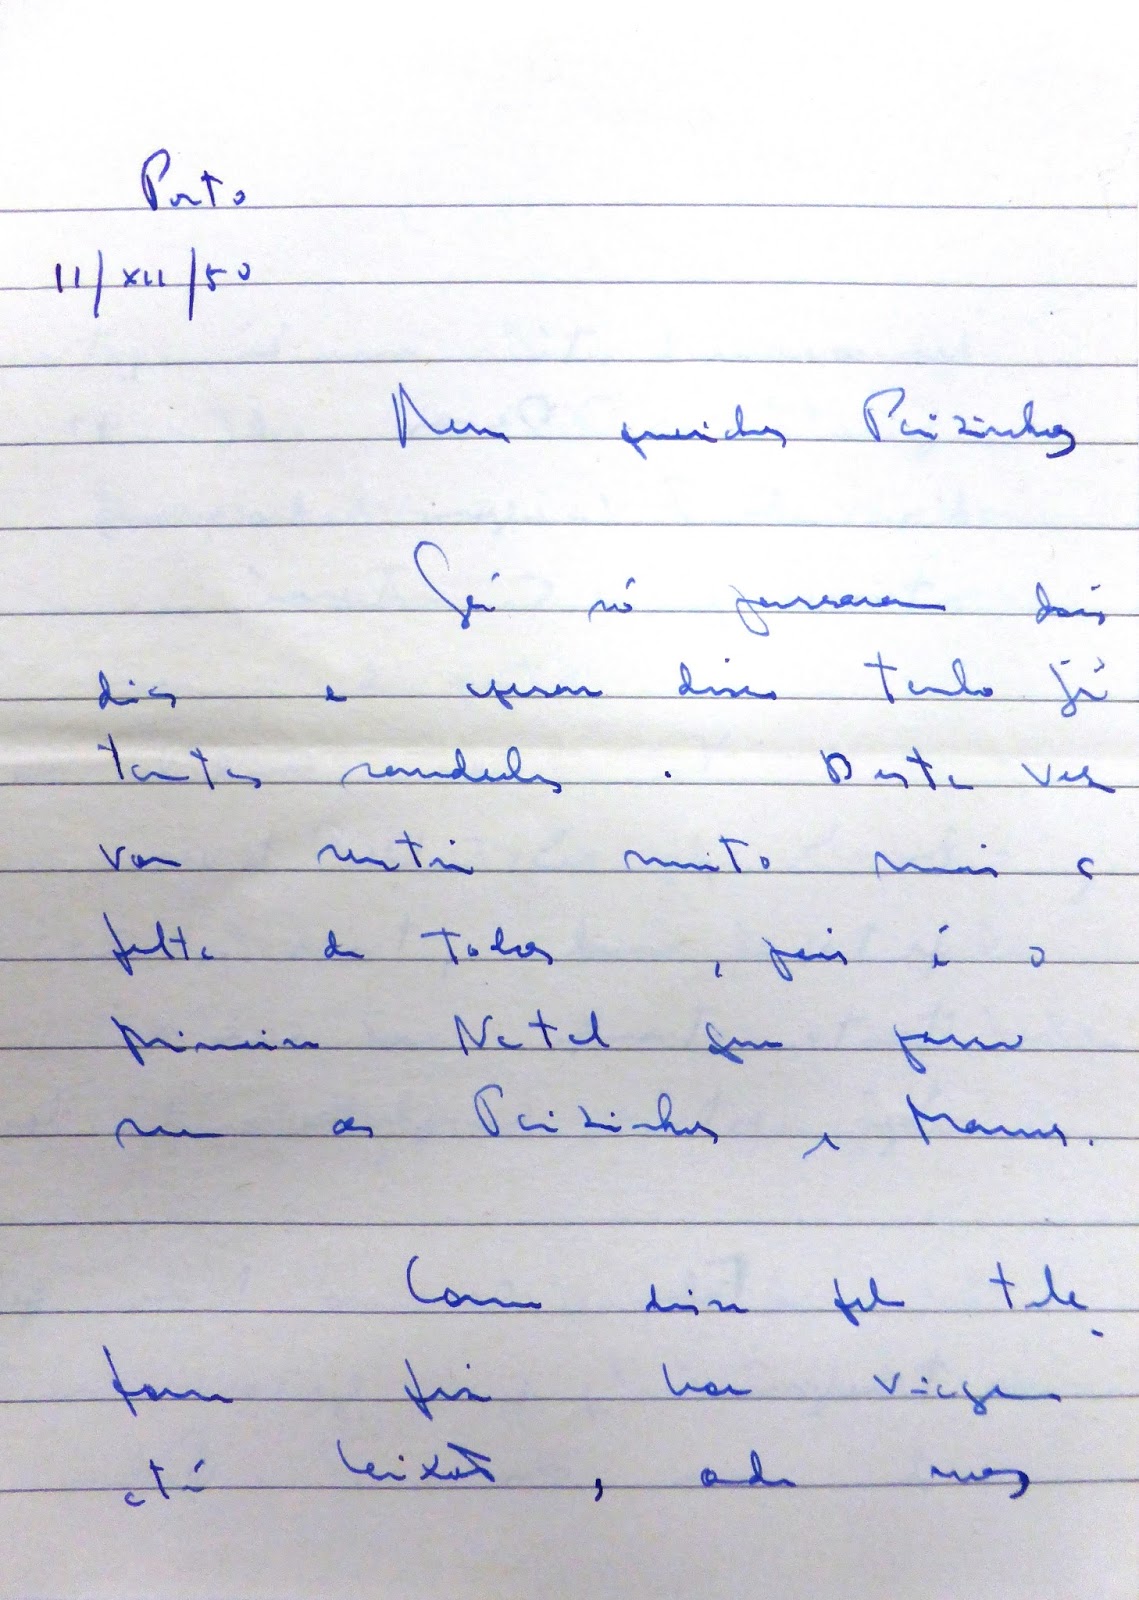 Porto
11/XII/50
Meus queridos Paizinhos
Já só passaram dois
dias e apesar disso tenho já
tantas saudades. Desta vez
vou sentir muito mais a
falta de todos, pois é o
primeiro Natal que passo
sem os Paizinhos e Manos.
Como disse pelo tele-
fone fiz boa viagem
até Leixões, onde nos